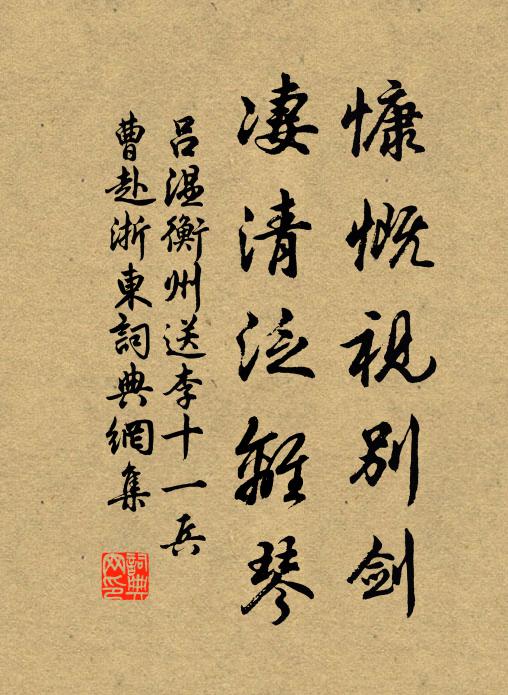 慷慨視別劍
凄清泛離琴
呂温衡州送李十一兵
曹赴浙東詞典網集
詞典
网印